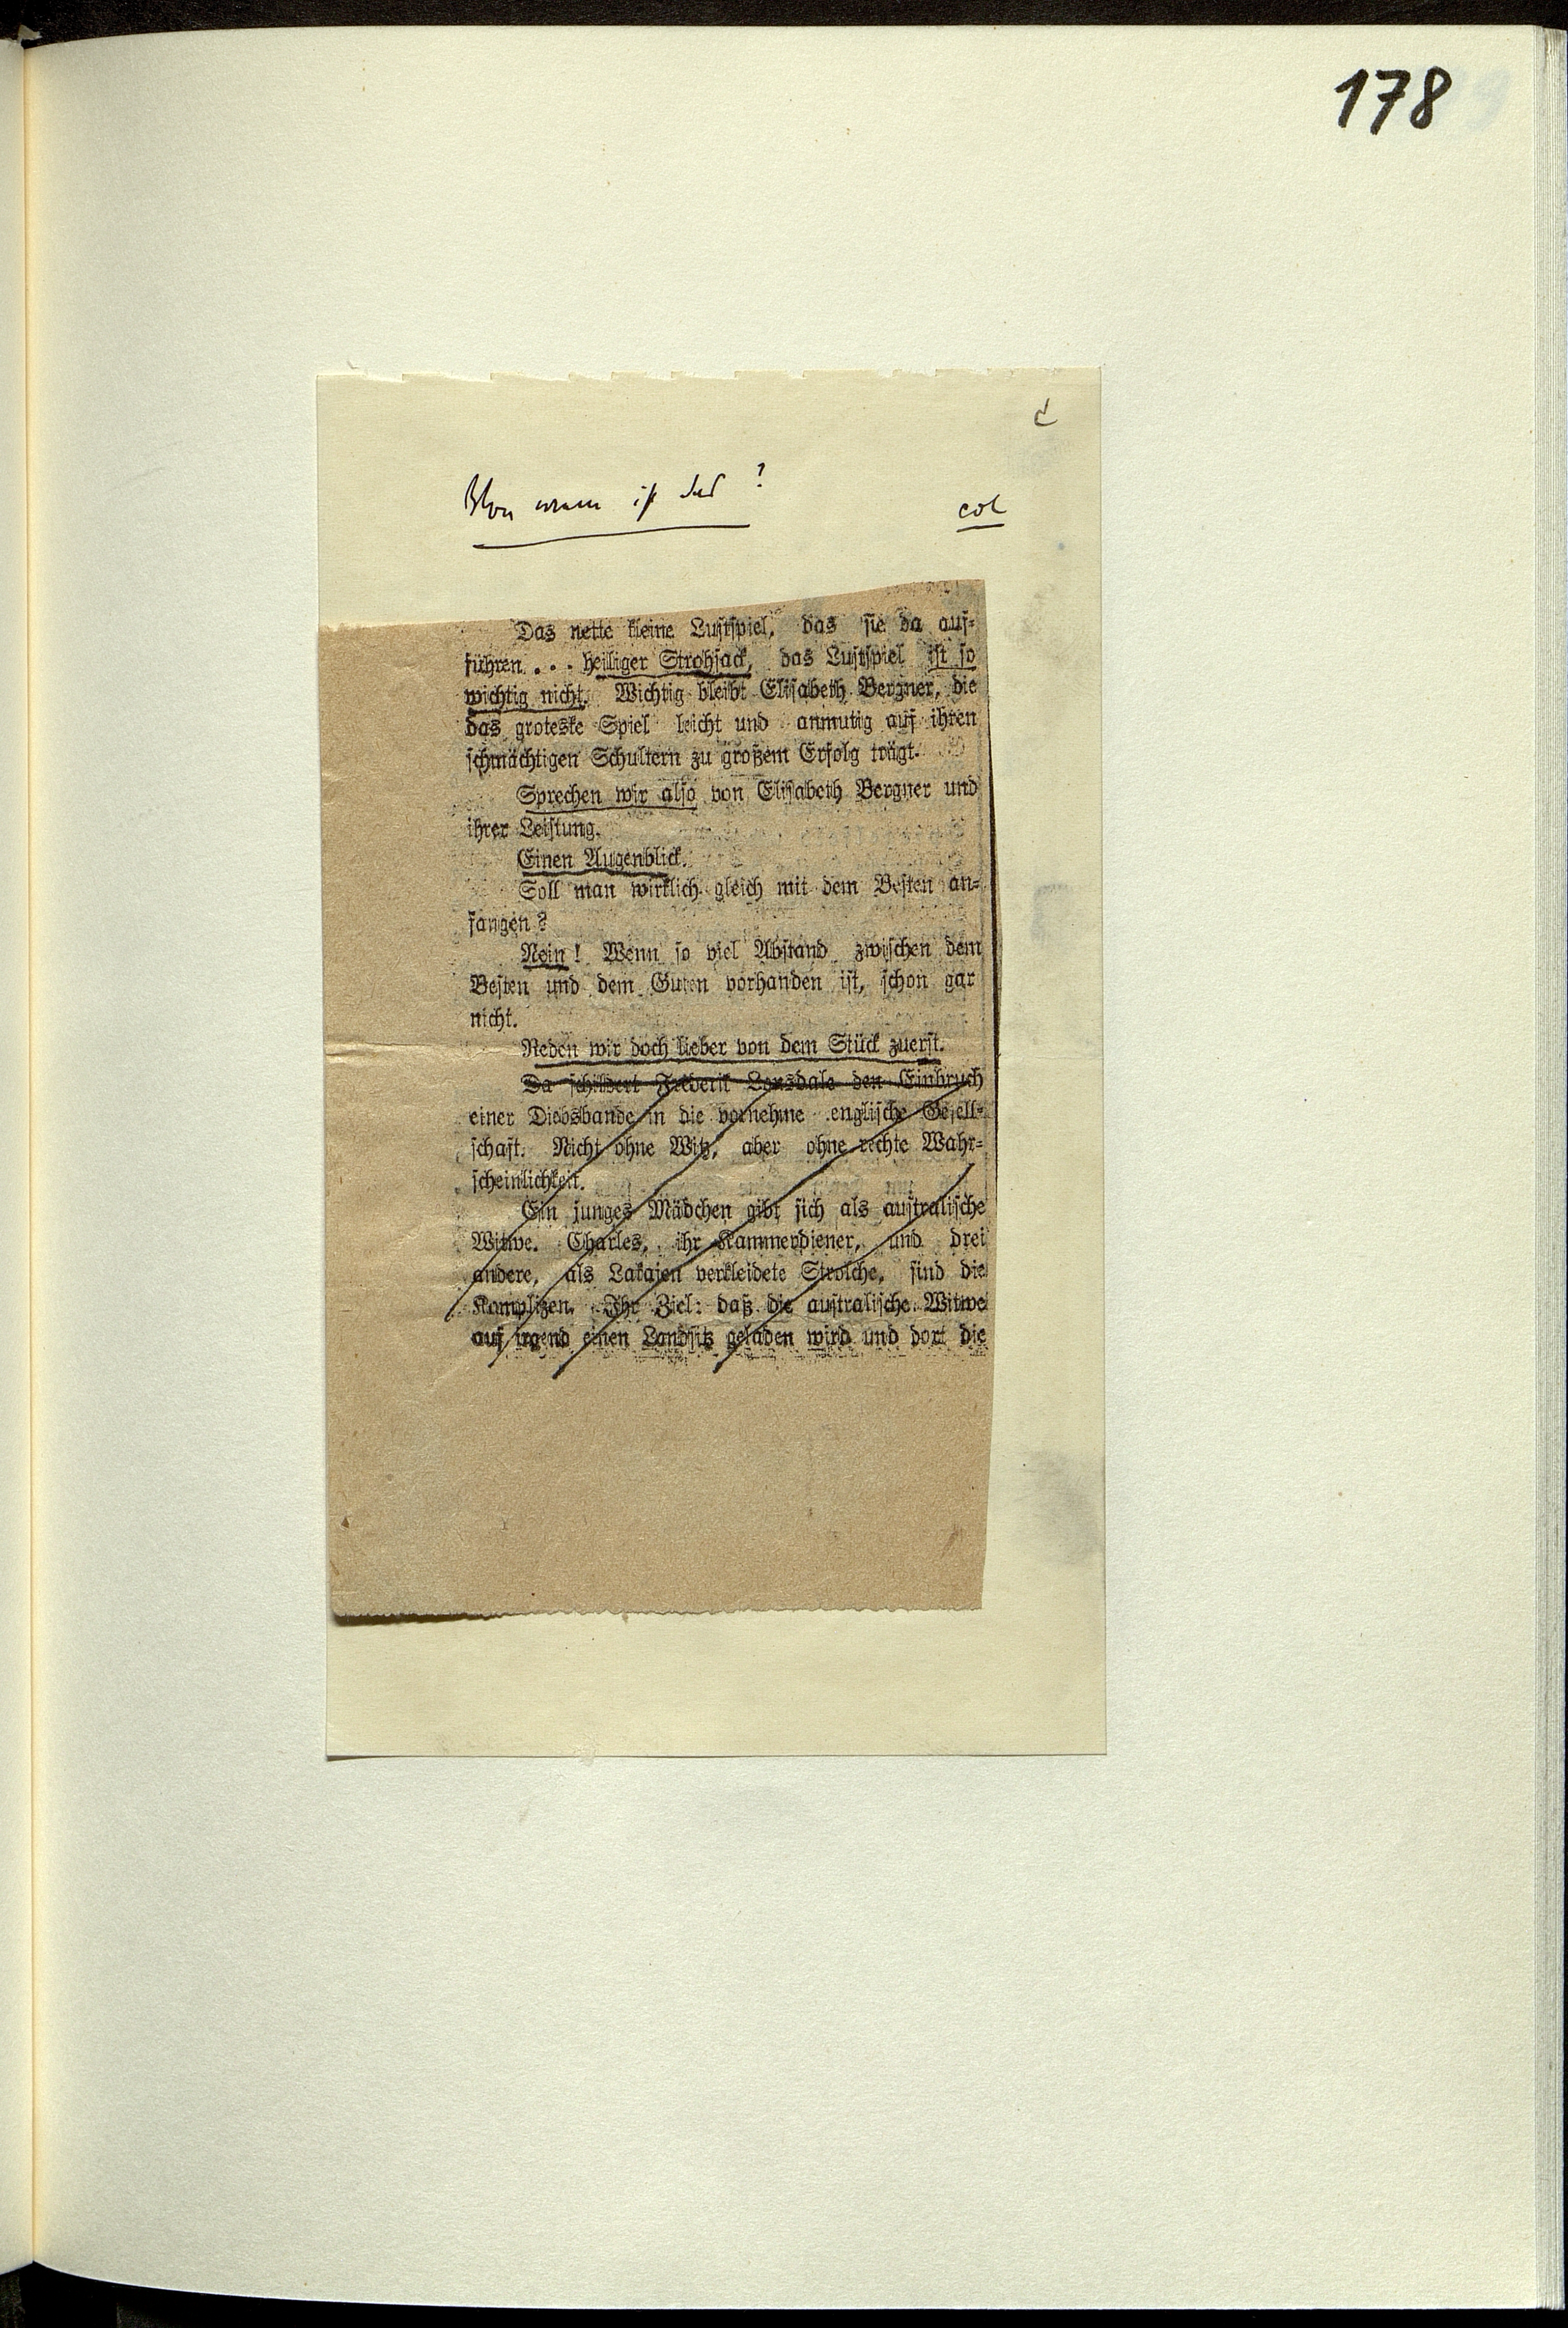 178
Von wem ist das?
col
Das nette kleine Lustspiel, das sie da auf-
führen... heiliger Strohsack, das Lustspiel ist so
wichtig nicht. Wichtig bleibt Elisabeth Bergner, die
das groteske Spiel leicht und anmutig auf ihren
schmächtigen Schultern zu großem Erfolg trägt.
Sprechen wir also von Elisabeth Bergner und
ihrer Leistung.
Einen Augenblick.
Soll man wirklich gleich mit dem Besten an-
fangen?
Nein! Wenn so viel Abstand zwischen dem
Besten und dem Guten vorhanden ist, schon gar
nicht.
Reden wir doch lieber von dem Stück zuerst.
Da schildert Frederik Lonsdale den Einbruch
einer Diebsbande in die vornehme englische Gesell-
schaft. Nicht ohne Witz, aber ohne rechte Wahr-
scheinlichkeit.
Ein junges Mädchen gibt sich als australische
Witwe. Charles, ihr Kammerdiener, und drei
andere, als Lakajen verkleidete Strolche, sind die
Komplizen. Ihr Ziel: daß die australische Witwe
auf irgend einen Landsitz geladen wird und dort die